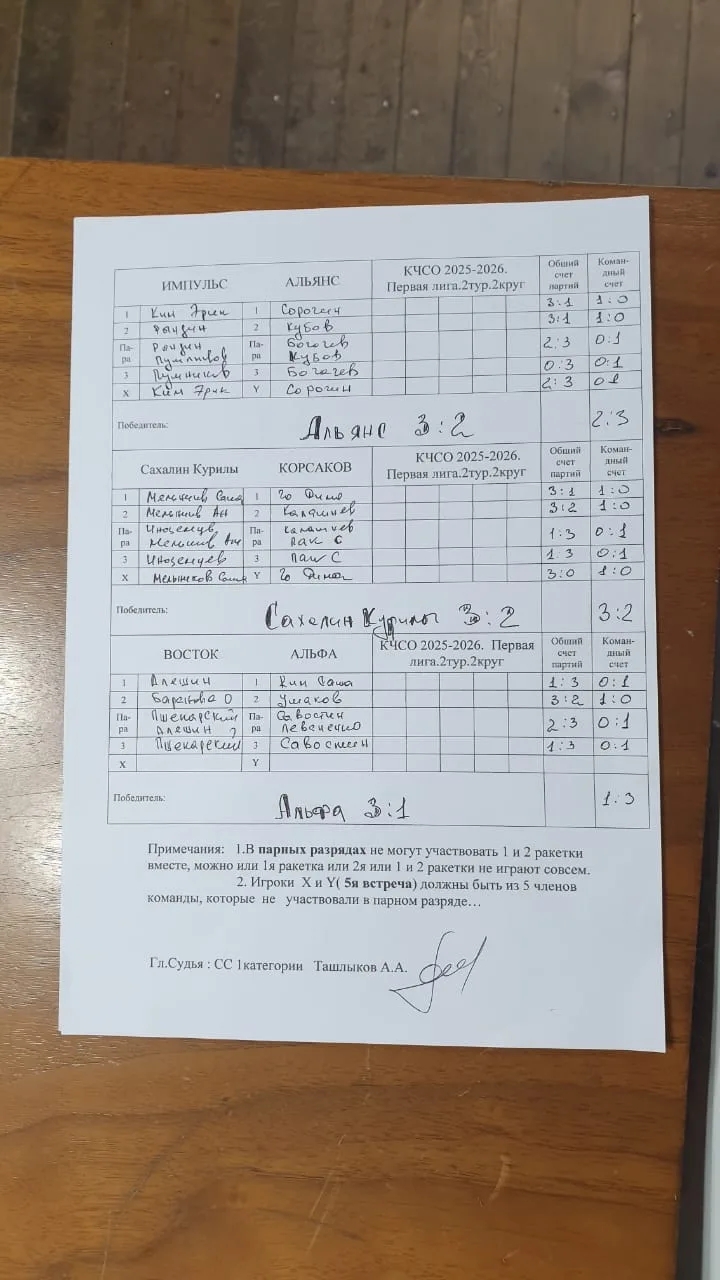 ИМПУЛЬС АЛЬЯНС КЧСО 2025-2026. Первая лига.2тур.2круг Общий счет партий Коман- дный счет
1 Ким Эрик 1 Сорогин 3:1 1:0
2 Рындин 2 Кубов 3:1 1:0
Па- ра Рындин Па- ра Богачев 2:3 0:1
Кубов
3 3 Богачев 0:3 0:1
X Ким Эрик Y Сорогин 2:3 0:1
Победитель: Альянс 3:2 2:3
Сахалин Курилы КОРСАКОВ КЧСО 2025-2026. Первая лига.2тур.2круг Общий счет партий Коман- дный счет
1 1 Го Дима 3:1 1:0
2 2 Калашнев 3:2 1:0
Па- ра Иноземцев Па- ра Калашнев 1:3 0:1
Пак С
3 Иноземцев 3 Пак С 1:3 0:1
X Мельников Саша Y Го Дима 3:0 1:0
Победитель: Сахалин Курилы 3:2 3:2
ВОСТОК АЛЬФА КЧСО 2025-2026. Первая лига.2тур.2круг Общий счет партий Коман- дный счет
1 Алешин 1 Ким Саша 1:3 0:1
2 О 2 Ушаков 3:2 1:0
Па- ра Пшенарский Па- ра Савостин 2:3 0:1
Алешин Левченко
3 Пшенарский 3 Савостин 1:3 0:1
X Y
Победитель: Альфа 3:1 1:3
Примечания: 1.В парных разрядах не могут участвовать 1 и 2 ракетки
вместе, можно или 1я ракетка или 2я или 1 и 2 ракетки не играют совсем.
2. Игроки X и Y( 5я встреча) должны быть из 5 членов
команды, которые не участвовали в парном разряде…
Гл.Судья : СС 1категории Ташлыков А.А.